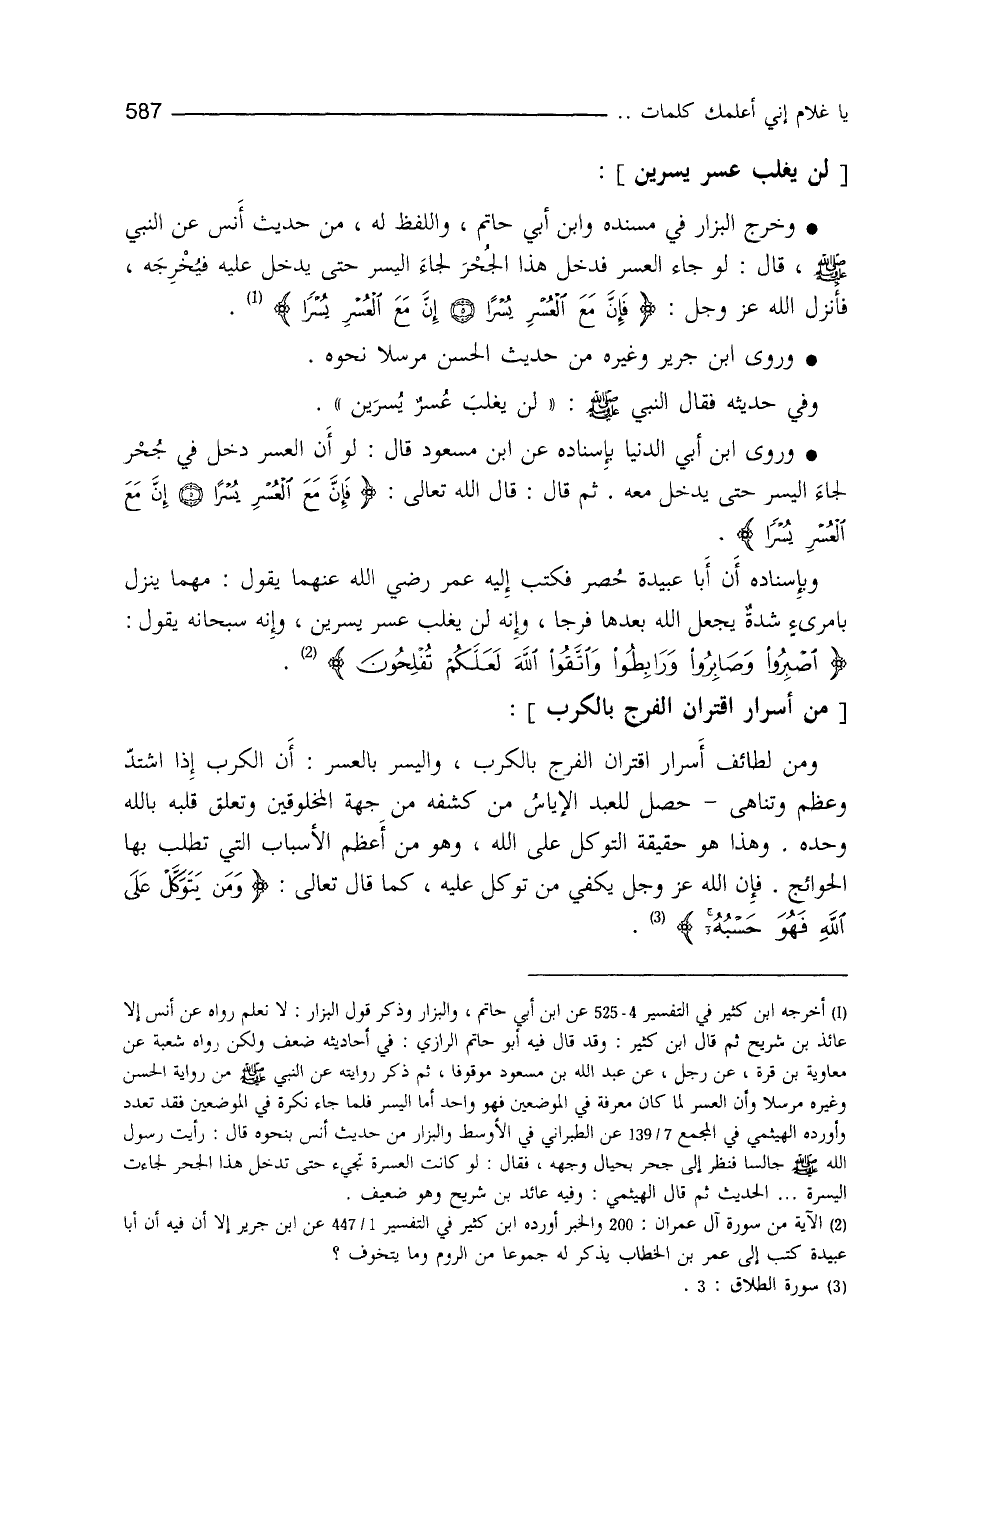 يا غلام إني أعلمك كلمات .. 587
[ لن يغلب عسر يسرين ] :
● وخرج البزار في مسنده وابن أبي حاتم ، واللفظ له ، من حديث أَنس عن النبي
ﷺ ، قال : لو جاء العسر فدخل هذا الجُحْرَ لجاءَ اليسر حتى يدخل عليه فيُخْرِجَه ،
فأَنزل الله عز وجل : ﴿ فَإِنَّ مَعَ ٱلْعُسْرِ يُسْرًا ۝٥ إِنَّ مَعَ ٱلْعُسْرِ يُسْرًا ﴾ (1) .
● وروى ابن جرير وغيره من حديث الحسن مرسلا نحوه .
وفي حديثه فقال النبي ﷺ : « لن يغلبَ عُسرٌ يُسرَين » .
● وروى ابن أبي الدنيا بإسناده عن ابن مسعود قال : لو أَن العسر دخل في جُحْر
لجاءَ اليسر حتى يدخل معه . ثم قال : قال الله تعالى : ﴿ فَإِنَّ مَعَ ٱلْعُسْرِ يُسْرًا ۝٥ إِنَّ مَعَ
ٱلْعُسْرِ يُسْرًا ﴾ .
وبإسناده أَن أَبا عبيدة حُصر فكتب إليه عمر رضي الله عنهما يقول : مهما ينزل
بامرىءٍ شدةٌ يجعل الله بعدها فرجا ، وإنه لن يغلب عسر يسرين ، وإنه سبحانه يقول :
﴿ ٱصْبِرُواْ وَصَابِرُواْ وَرَابِطُواْ وَٱتَّقُواْ ٱللَّهَ لَعَلَّكُمْ تُفْلِحُونَ ﴾ (2) .
[ من أسرار اقتران الفرج بالكرب ] :
ومن لطائف أَسرار اقتران الفرج بالكرب ، واليسر بالعسر : أَن الكرب إذا اشتدّ
وعظم وتناهى – حصل للعبد الإياسُ من كشفه من جهة المخلوقين وتعلق قلبه بالله
وحده . وهذا هو حقيقة التوكل على الله ، وهو من أَعظم الأسباب التي تطلب بها
الحوائج . فإن الله عز وجل يكفي من توكل عليه ، كما قال تعالى : ﴿ وَمَن يَتَوَكَّلْ عَلَى
ٱللَّهِ فَهُوَ حَسْبُهُۥٓ ﴾ (3) .
(1) أخرجه ابن كثير في التفسير 4-525 عن ابن أبي حاتم ، والبزار وذكر قول البزار : لا نعلم رواه عن أنس إلا
عائذ بن شريح ثم قال ابن كثير : وقد قال فيه أبو حاتم الرازي : في أحاديثه ضعف ولكن رواه شعبة عن
معاوية بن قرة ، عن رجل ، عن عبد الله بن مسعود موقوفا ، ثم ذكر روايته عن النبي ﷺ من رواية الحسن
وغيره مرسلا وأن العسر لما كان معرفة في الموضعين فهو واحد أما اليسر فلما جاء نكرة في الموضعين فقد تعدد
وأورده الهيثمي في المجمع 139/7 عن الطبراني في الأوسط والبزار من حديث أنس بنحوه قال : رأيت رسول
الله ﷺ جالسا فنظر إلى جحر بحيال وجهه ، فقال : لو كانت العسرة تجيء حتى تدخل هذا الجحر لجاءت
اليسرة ... الحديث ثم قال الهيثمي : وفيه عائد بن شريح وهو ضعيف .
(2) الآية من سورة آل عمران : 200 والخبر أورده ابن كثير في التفسير 447/1 عن ابن جرير إلا أن فيه أن أبا
عبيدة كتب إلى عمر بن الخطاب يذكر له جموعا من الروم وما يتخوف ؟
(3) سورة الطلاق : 3 .